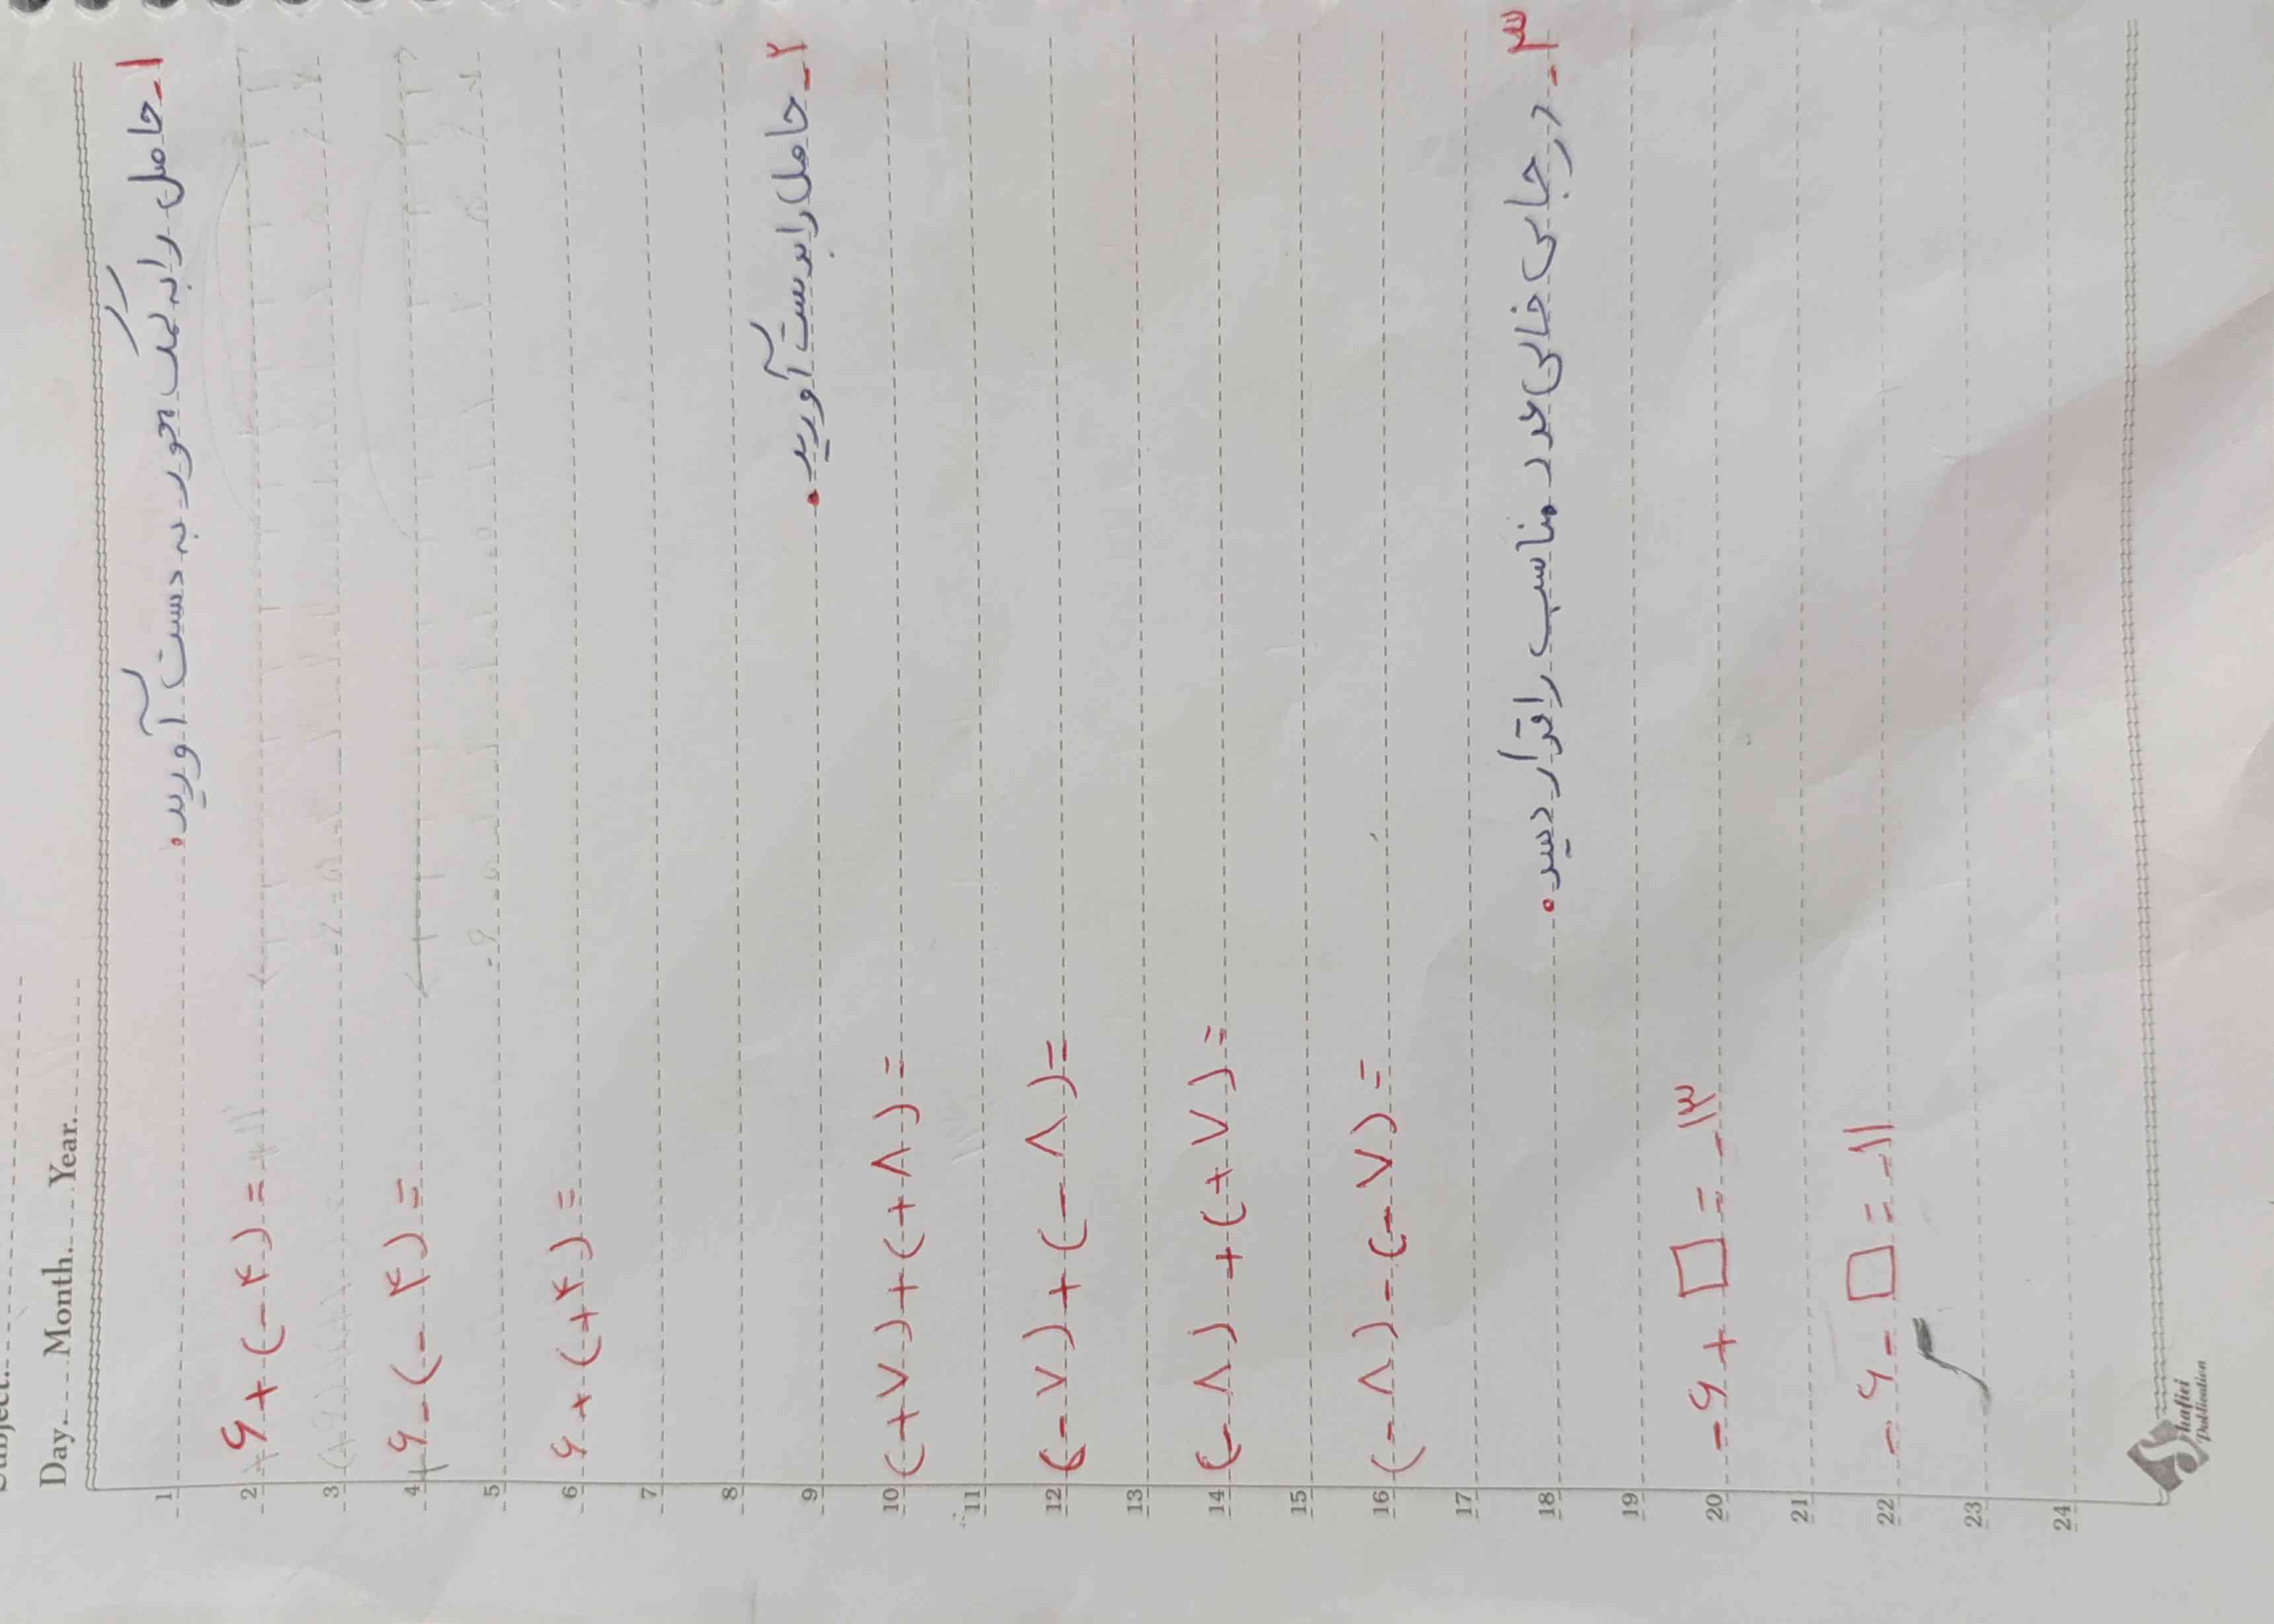 Day. Month. Year.
۱- حاصل را به کمک محور به دست آورید.
1
2 ۶ + (-۴) =
3
4 +۶ - (-۴) =
5
6 ۶ + (+۴) =
7
8
۲- حاصل را بدست آورید.
9
10 (+۷) + (+۸) =
11
12 (-۷) + (-۸) =
13
14 (-۸) + (+۷) =
15
16 (-۸) - (-۷) =
17
۳- در جای خالی عدد مناسب را قرار دهید.
18
19
20 -۶ + □ = -۱۳
21
22 -۶ - □ = -۱۱
23
24
Shafiei
Publication